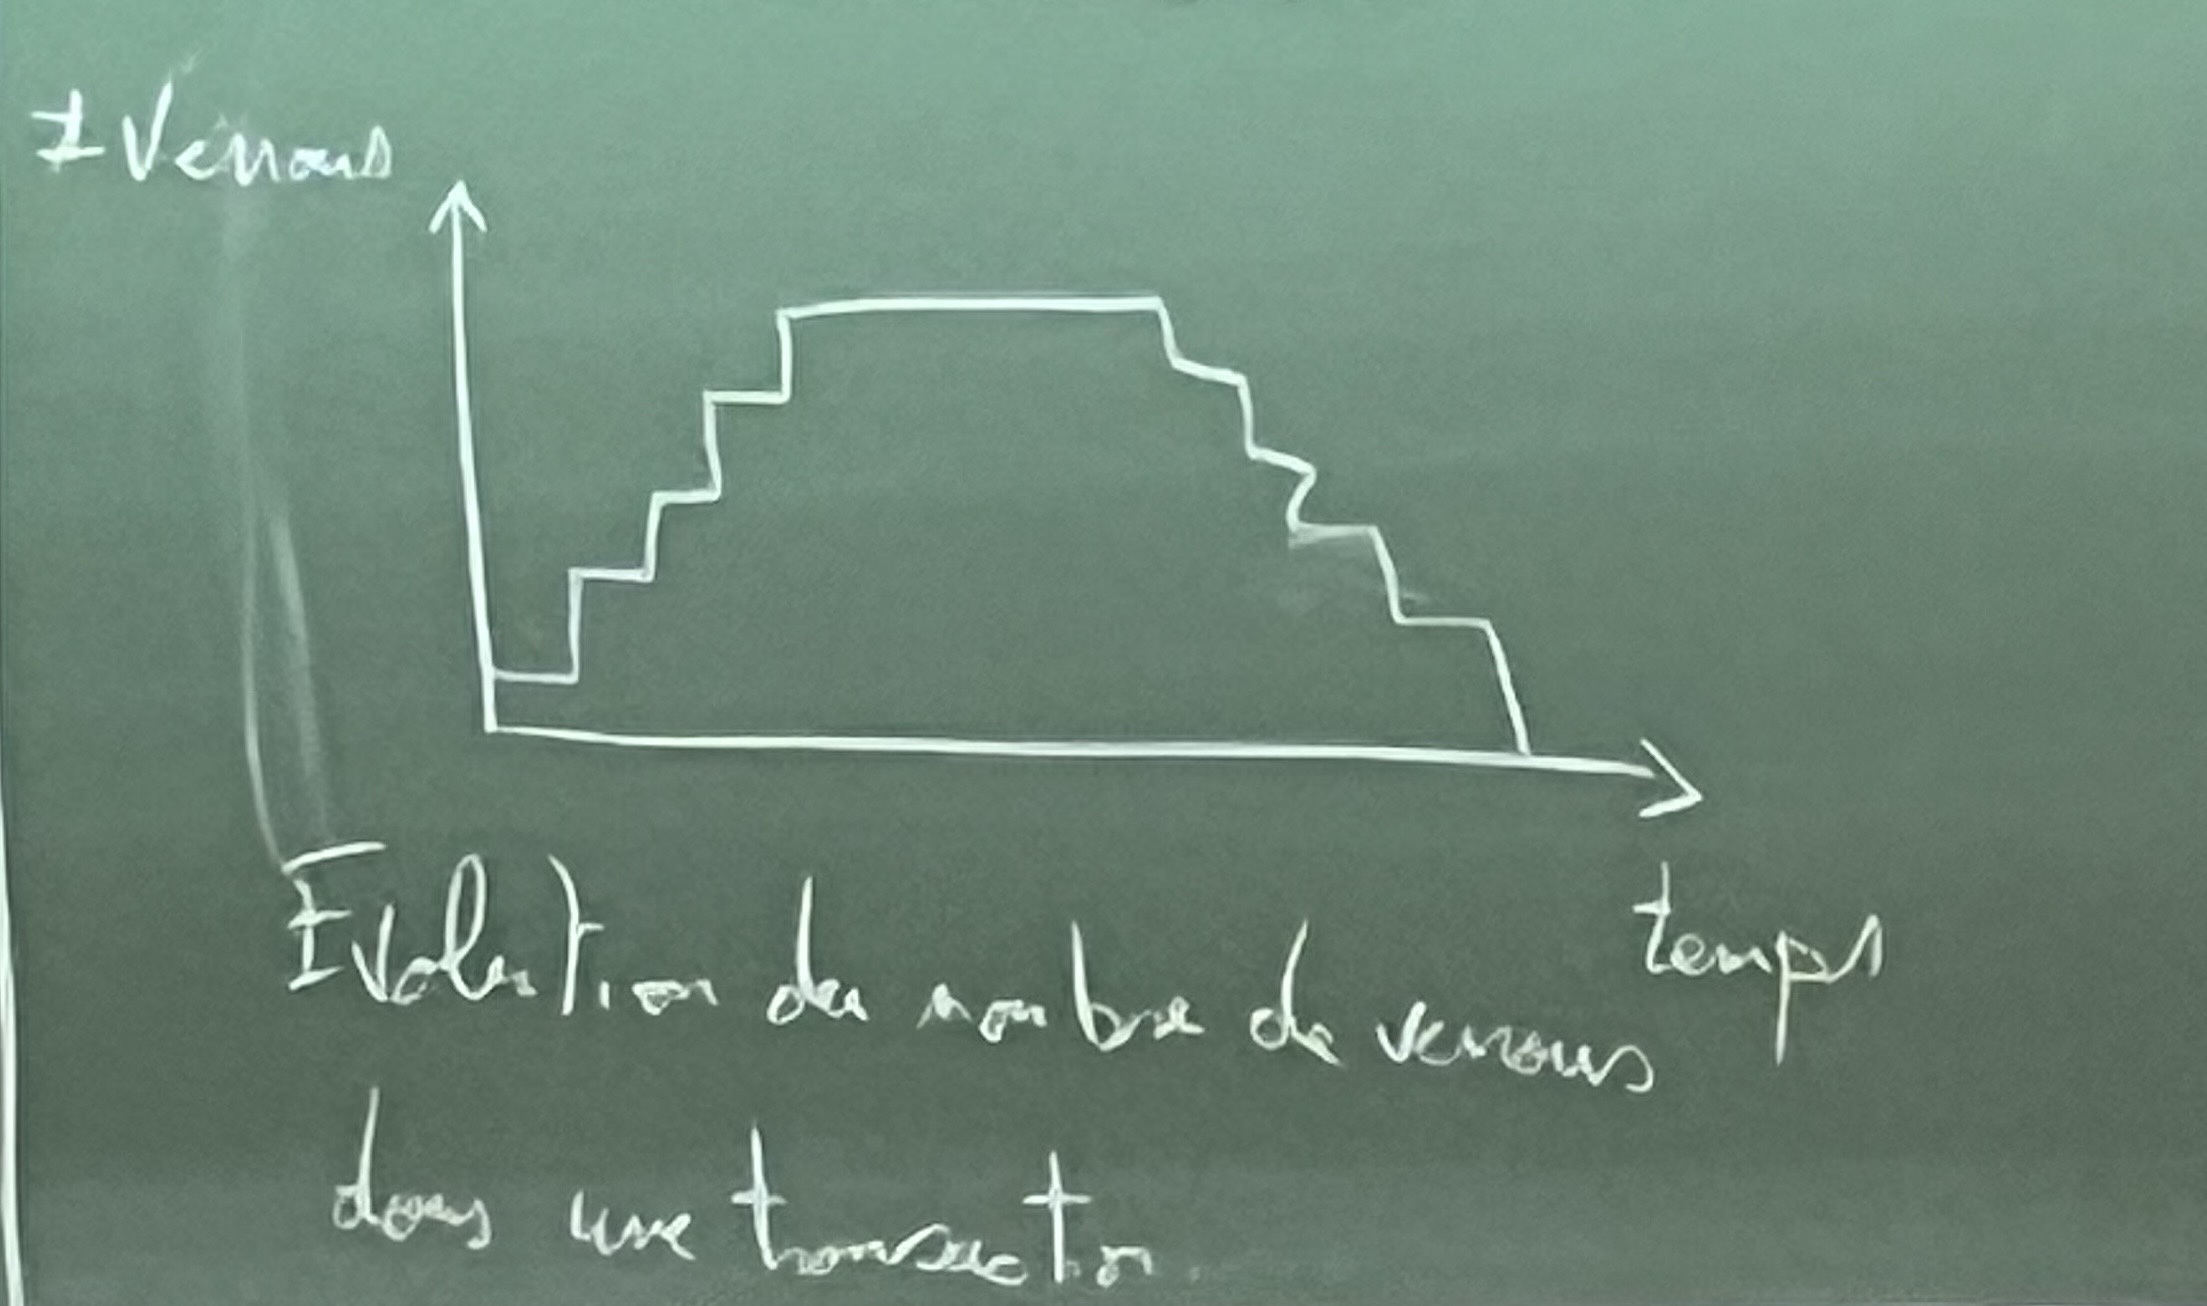 # Verrous
temps
Evolution du nombre de verrous
dans une transaction